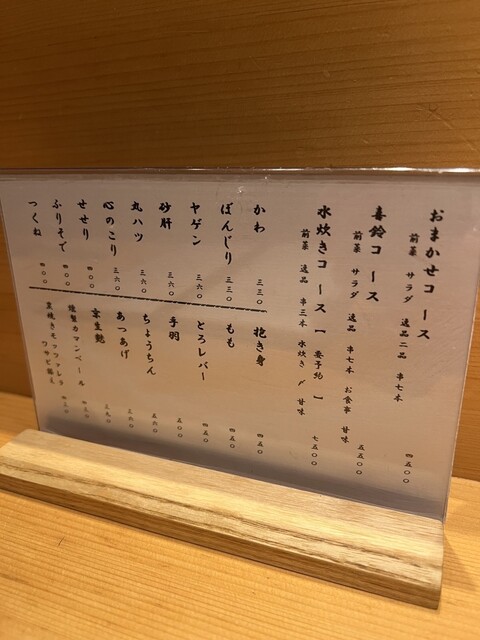 おまかせコース
前菜 サラダ 逸品二品 串七本 四五〇〇
喜鈴コース
前菜 サラダ 逸品 串七本 お食事 甘味 五五〇〇
水炊きコース【要予約】
前菜 逸品 串三本 水炊き 〆 甘味 七五〇〇
かわ 三三〇
ぼんじり 三三〇
ヤゲン 三六〇
砂肝 三六〇
丸ハツ 三六〇
心のこり 三六〇
せせり 四〇〇
ふりそで 四〇〇
つくね 四〇〇
抱き身 四五〇
もも 四五〇
とろレバー 四五〇
手羽 五〇〇
ちょうちん 五六〇
あつあげ 三六〇
京生麩 三九〇
燻製カマンベール 四五〇
炭焼きモッツァレラ
ワサビ添え 四五〇